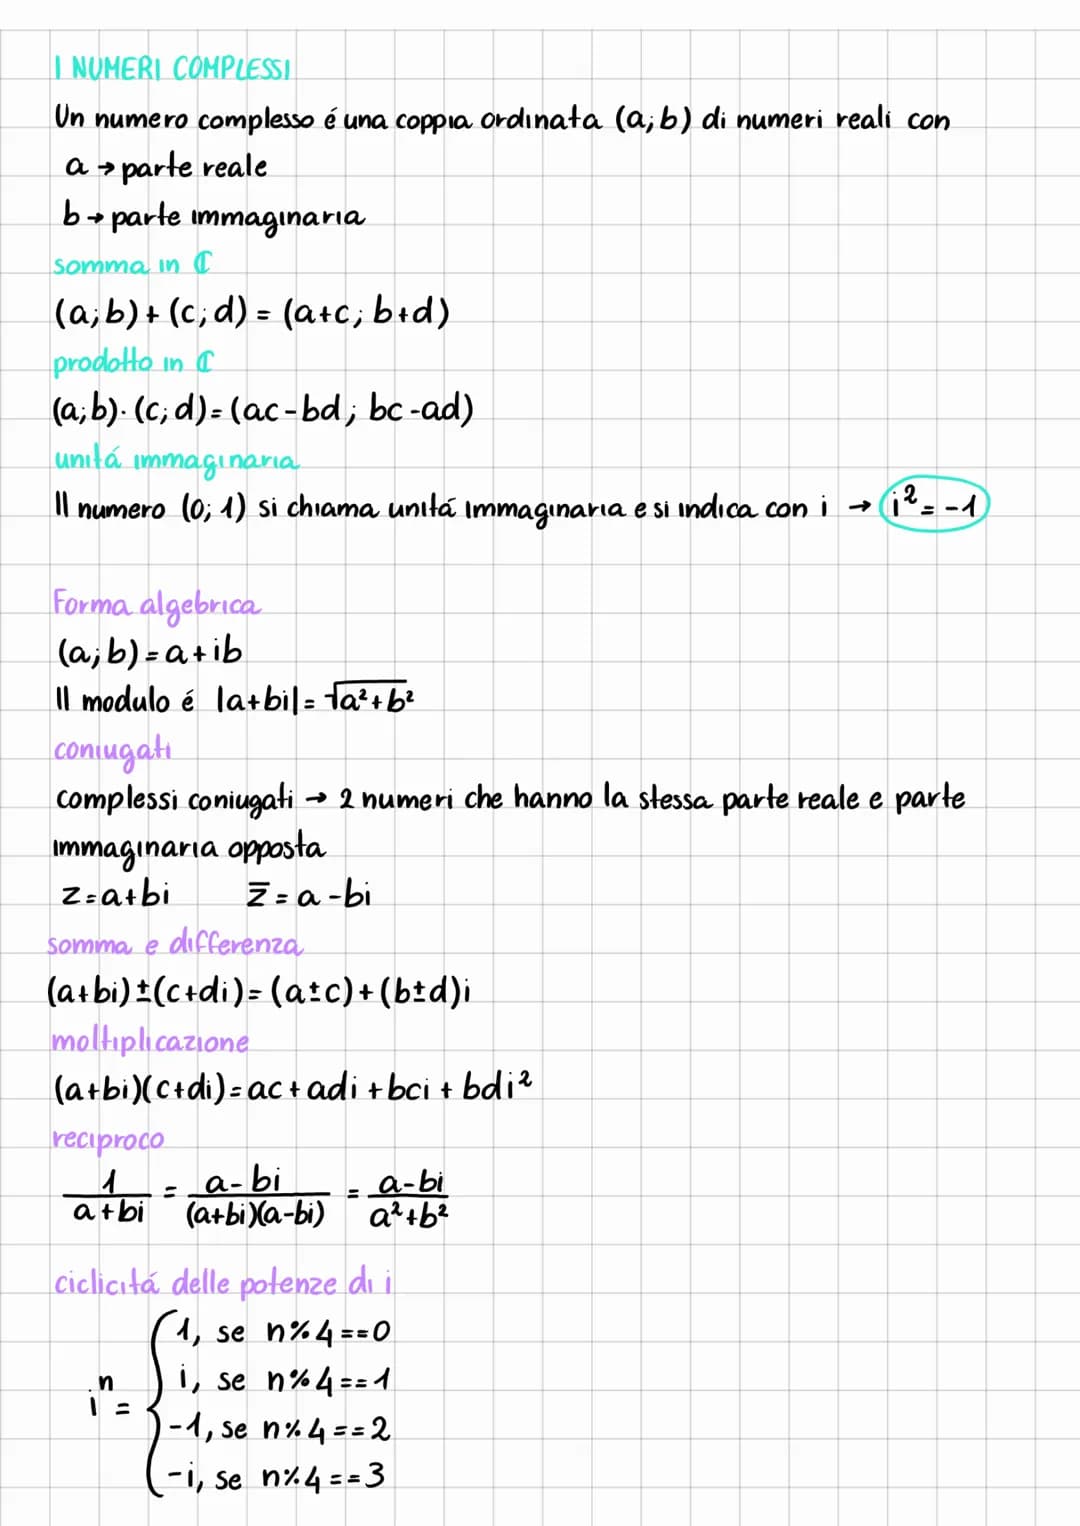 I NUMERI COMPLESSI
Un numero complesso é una coppia ordinata (a; b) di numeri reali con
a → parte reale
b → parte immaginaria
somma in ℂ
(a; b) + (c; d) = (a+c; b+d)
prodotto in ℂ
(a; b) · (c; d) = (ac - bd; bc - ad)
unitá immaginaria
Il numero (0; 1) si chiama unitá immaginaria e si indica con i → i² = -1
Forma algebrica
(a; b) = a + ib
Il modulo é |a+bi| = √a²+b²
coniugati
complessi coniugati → 2 numeri che hanno la stessa parte reale e parte
immaginaria opposta
z = a+bi z̅ = a - bi
somma e differenza
(a+bi) ± (c+di) = (a±c) + (b±d)i
moltiplicazione
(a+bi)(c+di) = ac + adi + bci + bdi²
reciproco
1/(a+bi) = (a-bi)/((a+bi)(a-bi)) = (a-bi)/(a²+b²)
ciclicitá delle potenze di i
iⁿ = { 1, se n%4==0
i, se n%4==1
-1, se n%4==2
-i, se n%4==3